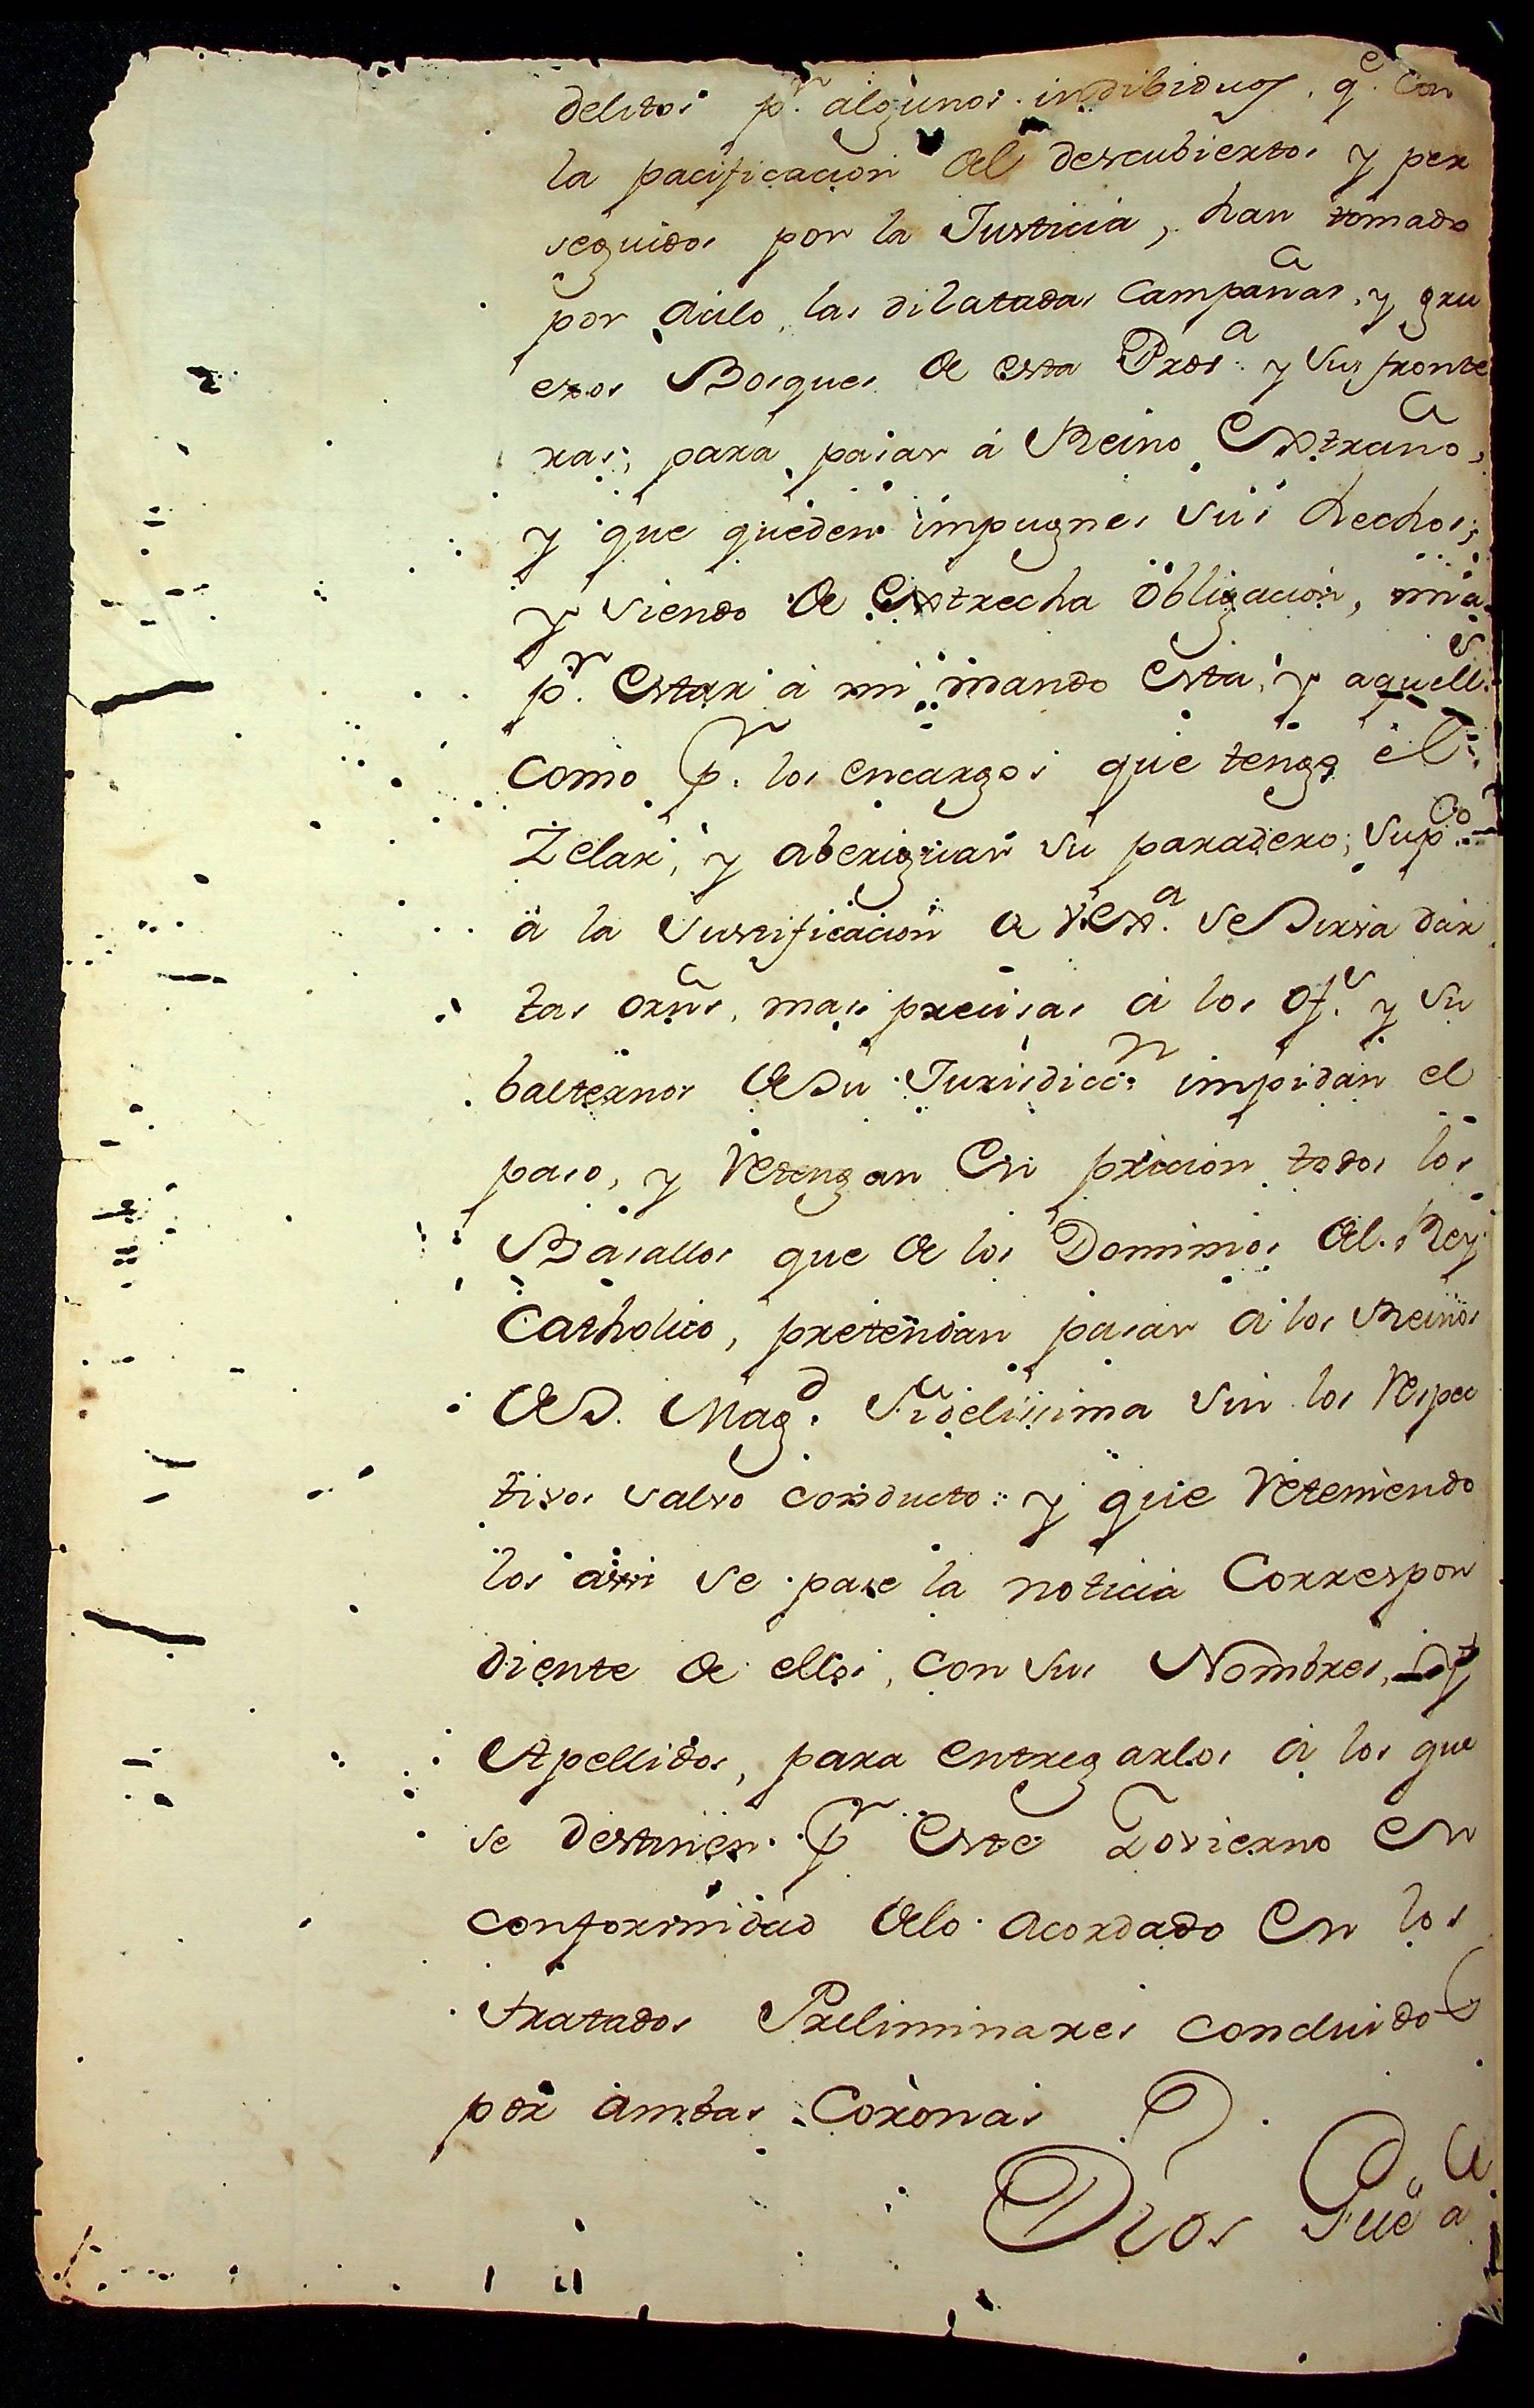 delitos p.r algunos indibiduos, q.e con
la pacificacion del descubiertos y per
seguidos por la Justicia, han tomado
por acilo, las dilatadas Campañas, y gru
esos Bosques de esta Prov.a y sus fronte
ras, para pasar á Reino Extraño,
y que queden impugnes sus hechos;
y siendo de extrecha obligacion, mia
p.r estar á mi mando esta, y aquell.s
como p.r los encargos que tengo el
Zelar, y aberiguar su paradero; sup.co
á la Justificacion de V.Ex.a se sirva dar
las orñs. mas precisas á los of.s y su
balternos de su Jurisdicc.n impidan el
paso, y retengan en pricion todos los
Basallos que de los Dominios del Rey
Catholico, pretendan pasar á los Reinos
de S. Mag.d Fidelissima sin los respec
tivos salvo conducto: y que reteniendo
los assi se pase la noticia Correspon
diente de ellos, con sus Nombres, y
Apellidos, para entregarlos á los que
se destinen p.r este Govierno en
conformidad de lo acordado en los
tratados Preliminares concluidos
por ambas Coronas
Dios Gue á